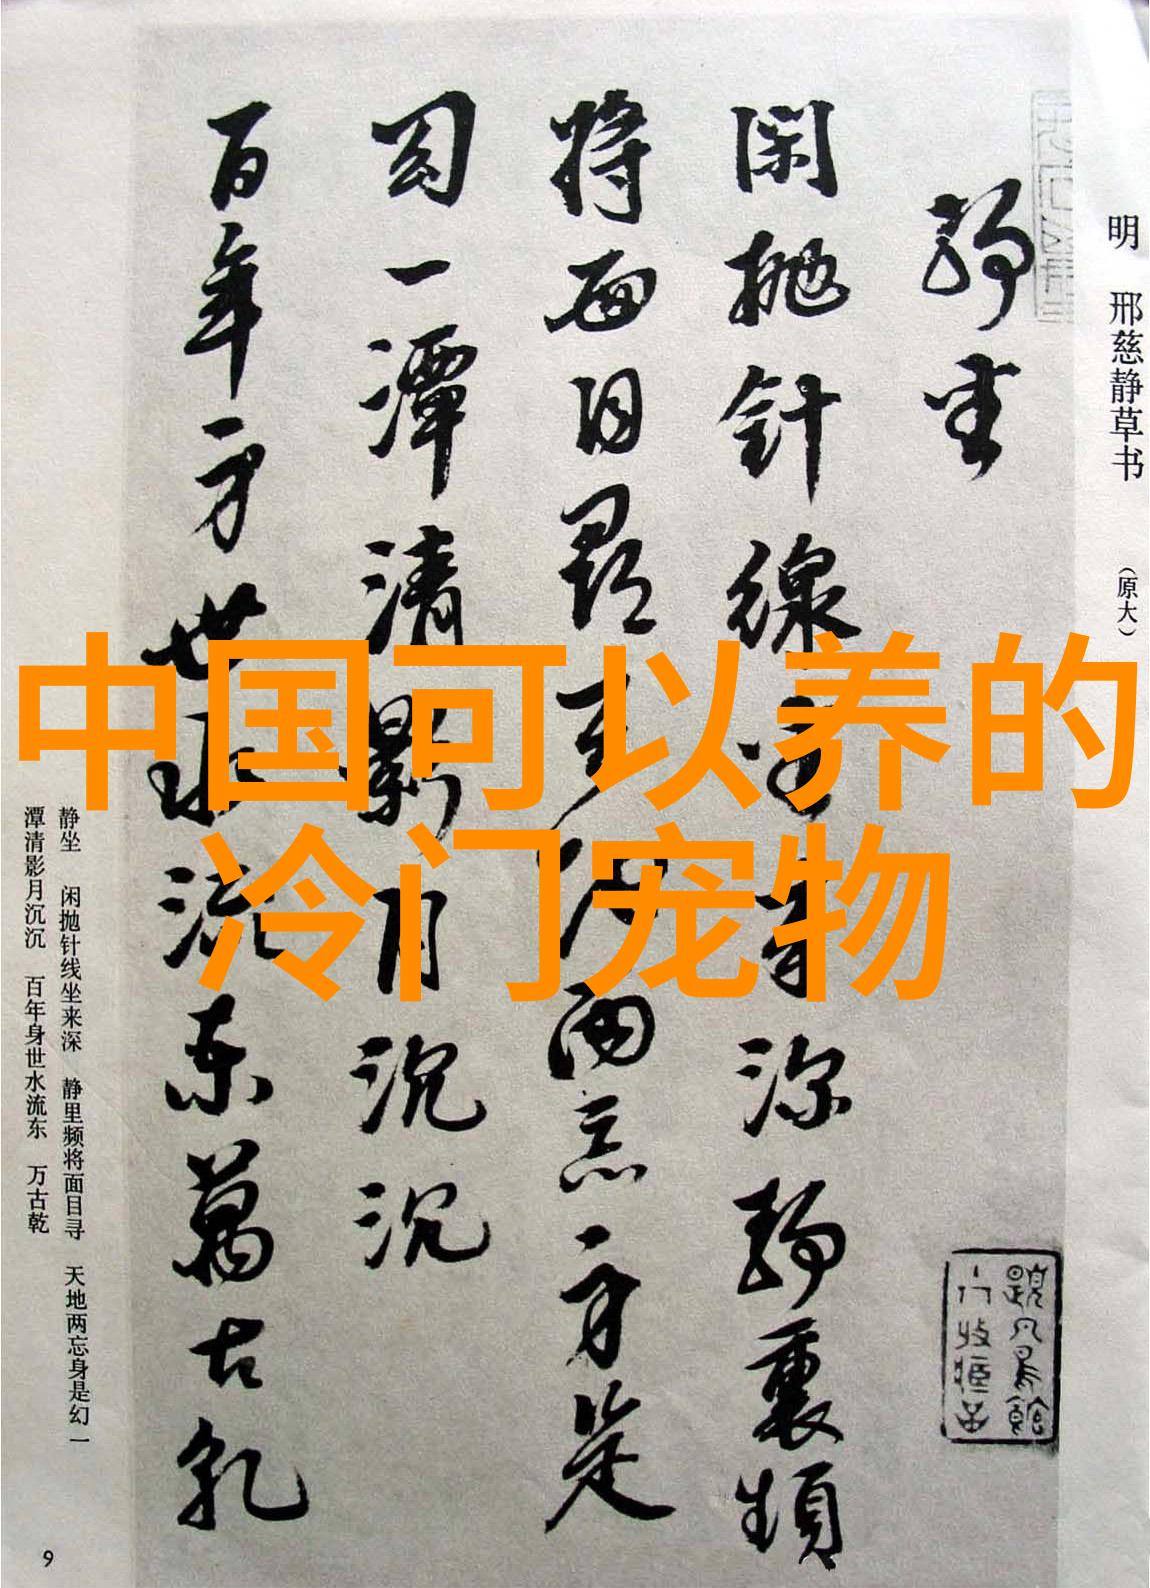 明 邢慈静草书 （原大）
静坐
闲抛针線坐来深静裏頻
将面目尋天地两忘身是
幻一潭清影月沉沉
百年身世水流东萬古乾
中国可以养的
冷门宠物
静坐 闲抛针线坐来深 静里频将面目寻 天地两忘身是幻 一
潭清影月沉沉 百年身世水流东 万古乾
9